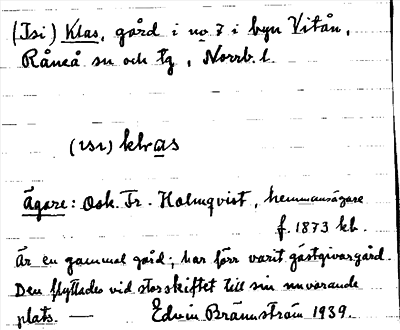 (Isi) Klas, gård i no 7 i byn Vitån,
Råneå sn och tg, Norrb. l.
(ısı) klɑs
Ägare: Osk. Fr. Holmqvist, hemmansägare
f. 1873 hb.
Är en gammal gård; har förr varit gästgivargård.
Den flyttades vid storskiftet till sin nuvarande
plats. — Edvin Brännström 1939.